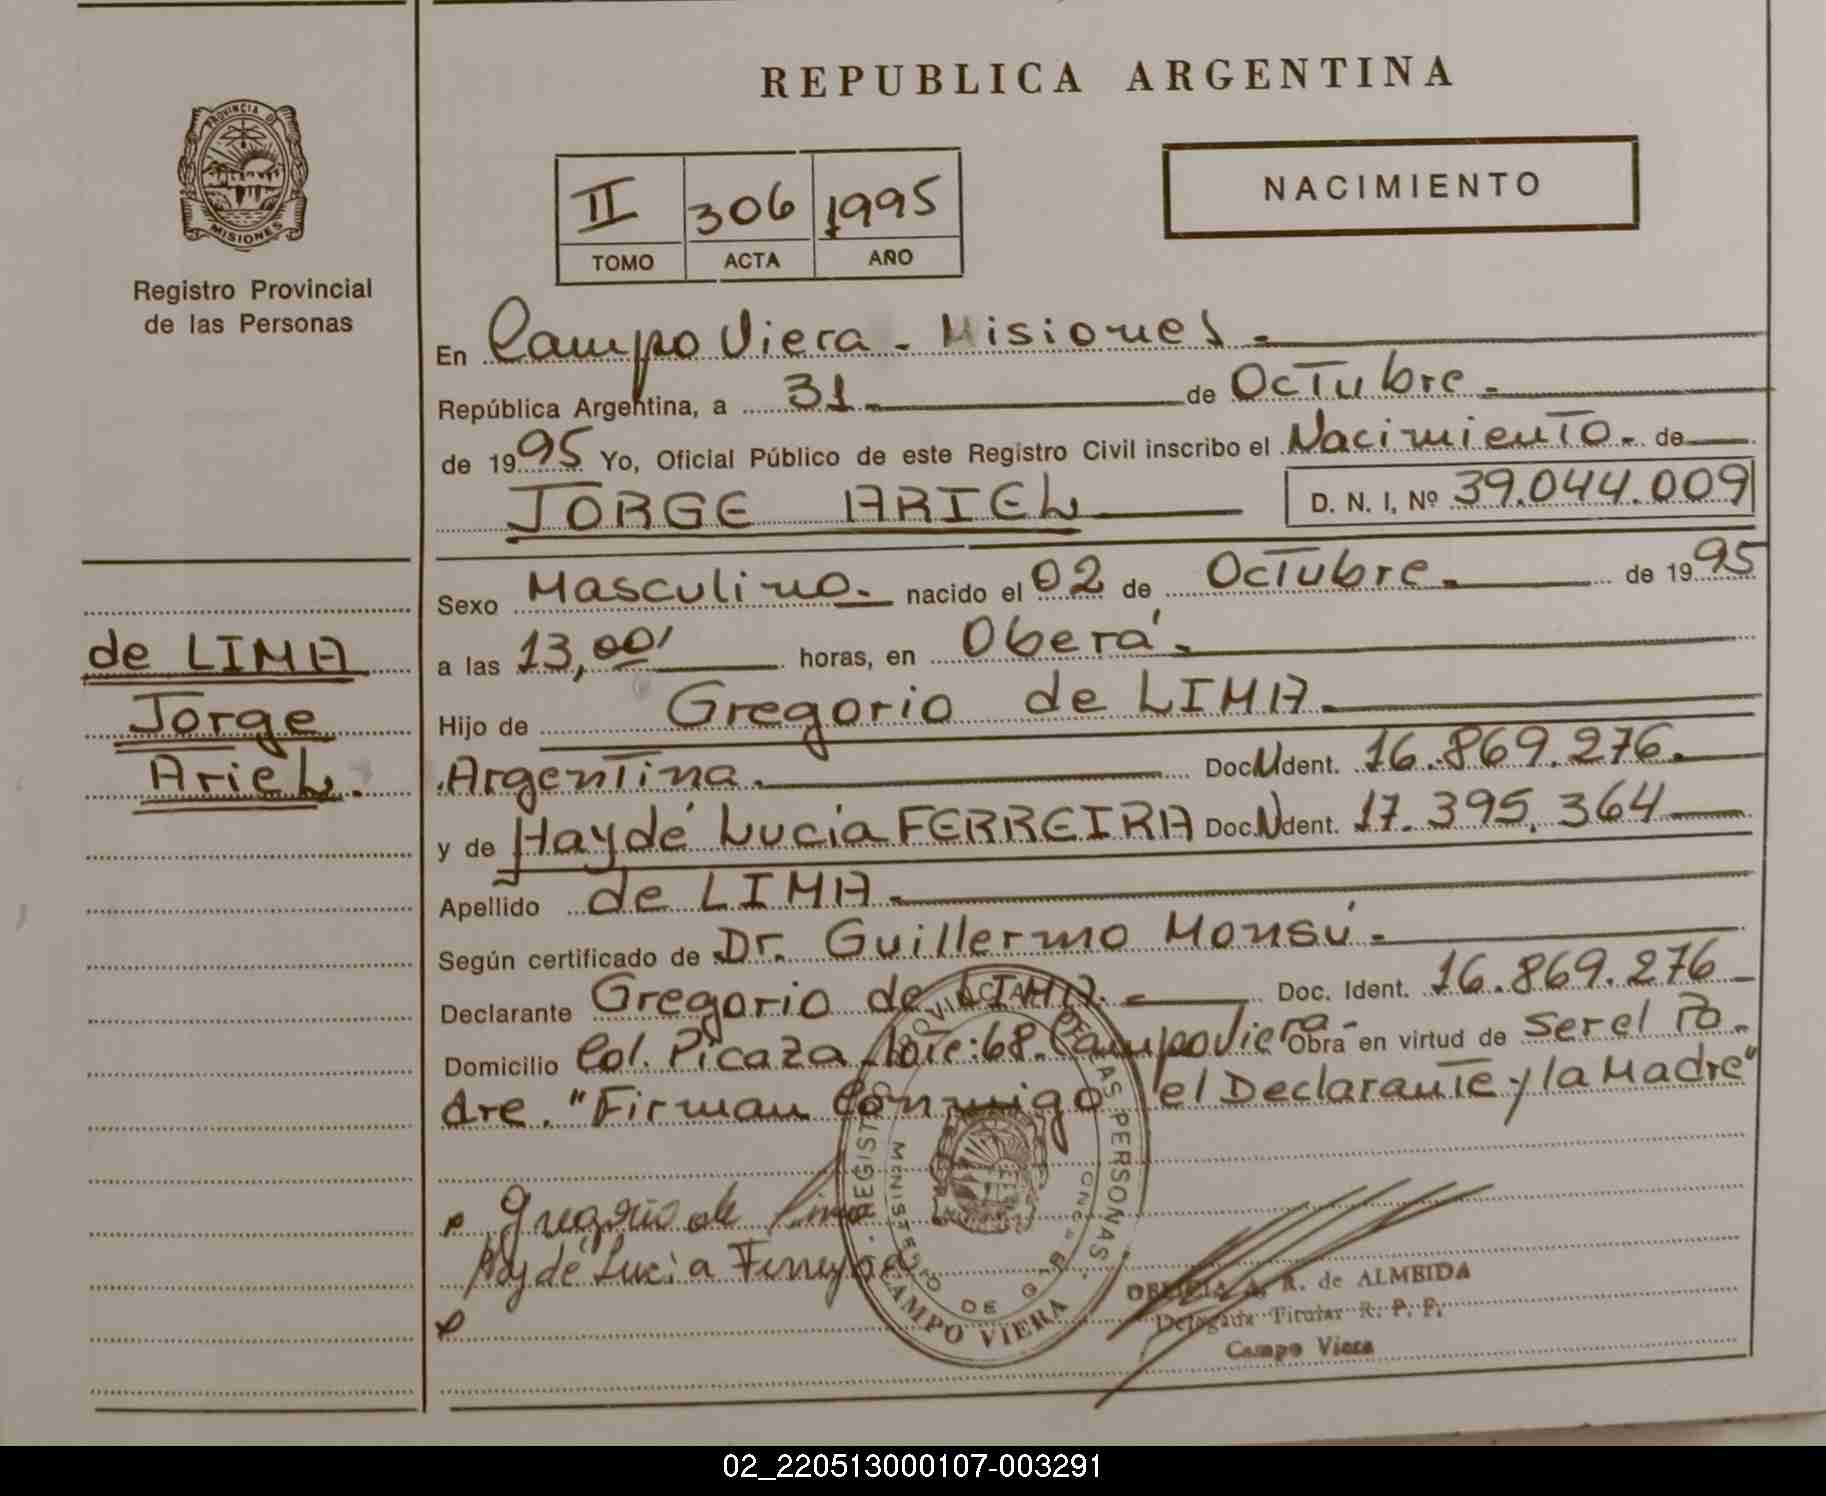 REPUBLICA ARGENTINA
PROVINCIA DE
MISIONES
Registro Provincial
de las Personas
II 306 1995
TOMO ACTA AÑO
NACIMIENTO
En Campo Viera - Misiones.-
República Argentina, a 31 de Octubre.-
de 1995 Yo, Oficial Público de este Registro Civil inscribo el Nacimiento. de
JORGE ARIEL D. N. I, Nº 39.044.009
Sexo Masculino.- nacido el 02 de Octubre. de 1995
de LIMA
Jorge
Ariel.
a las 13,00' horas, en Oberá.-
Hijo de Gregorio de LIMA.
Argentina. Doc. Ident. 16.869.276.
y de Haydé Lucia FERREIRA Doc. Ident. 17.395.364
Apellido de LIMA.
Según certificado de Dr. Guillermo Monsú.-
Declarante Gregorio de LIMA. Doc. Ident. 16.869.276
Domicilio Col. Picaza Lote:68. Campo Viera- Obra en virtud de ser el Pa-
dre. "Firman Conmigo el Declarante y la Madre"
Gregorio de Lima
Haydé Lucia Ferreyra
REGISTRO PROVINCIAL DE LAS PERSONAS
MINISTERIO DE GOB.
CAMPO VIERA
A. R. de ALMEIDA
Delegada Titular R. P. P.
Campo Viera
02_220513000107-003291